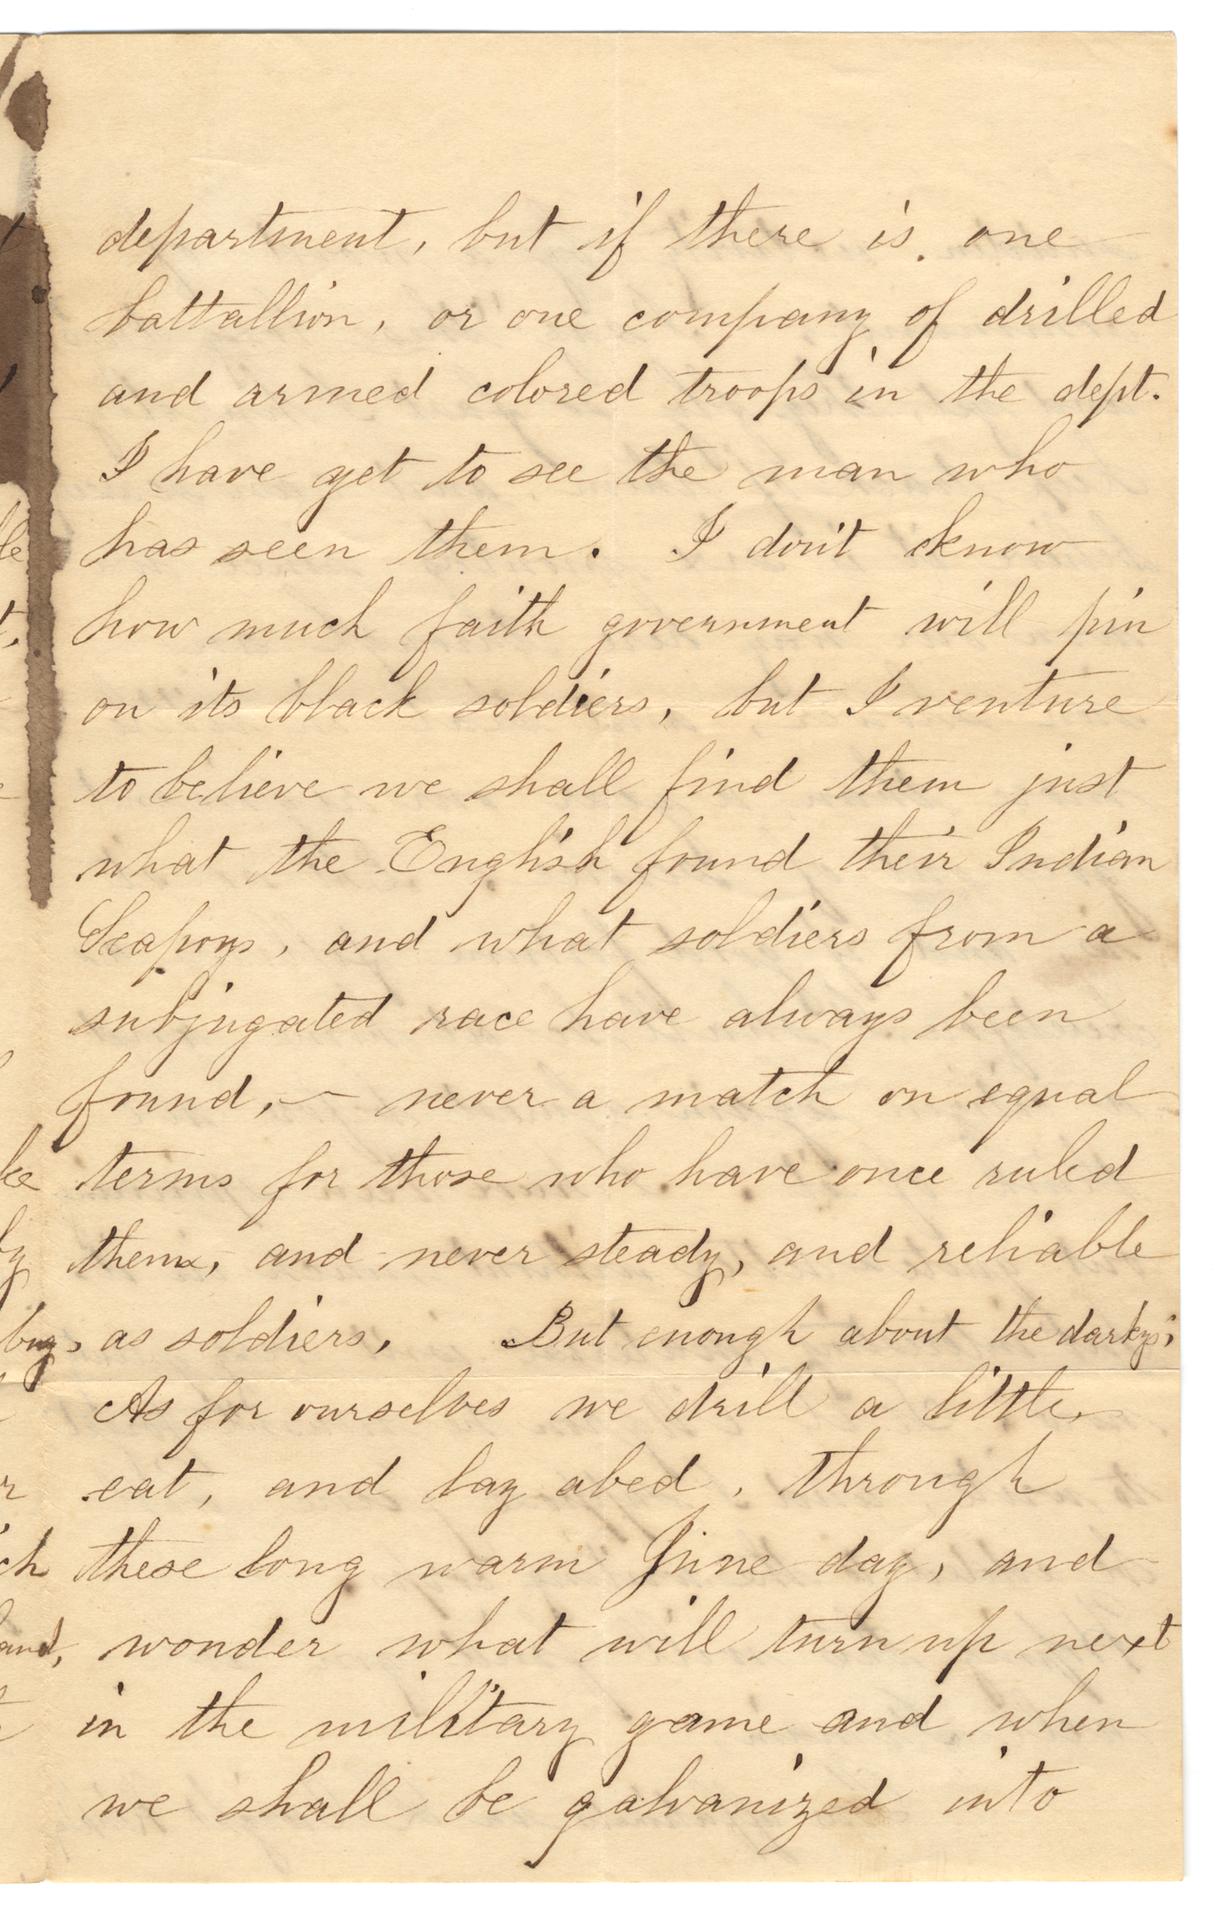 department, but if there is one
battallion, or one company of drilled
and armed colored troops in the dept.
I have yet to see the man who
has seen them. I don't know
how much faith government will pin
on its black soldiers, but I venture
to believe we shall find them just
what the English found their Indian
Seapoys, and what soldiers from a
subjugated race have always been
found, — never a match on equal
terms for those who have once ruled
them, and never steady, and reliable
as soldiers. But enough about the darkys;
As for ourselves we drill a little,
eat, and lay abed, through
these long warm June day, and
wonder what will turn up next
in the military game and when
we shall be galvanized into